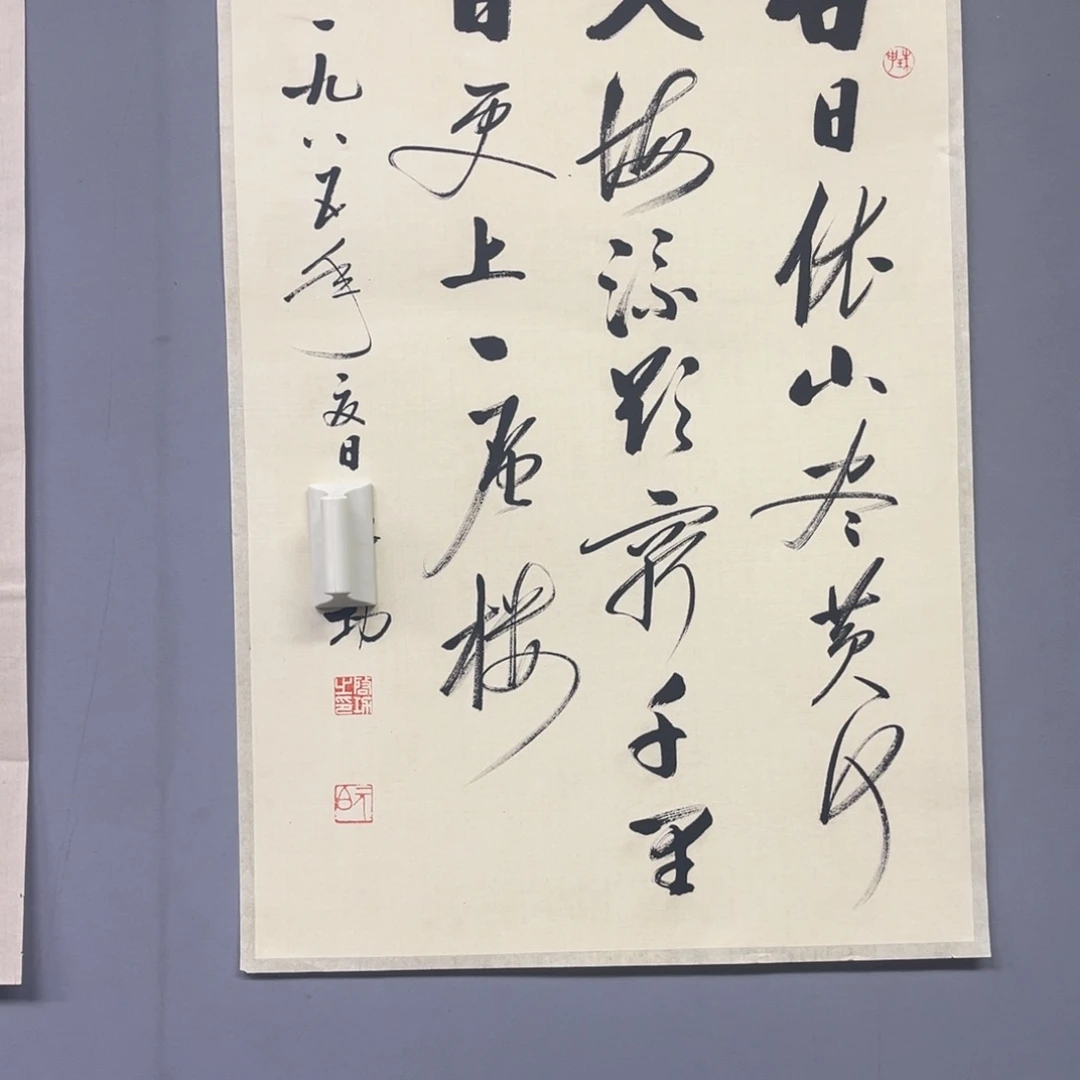 白日依山尽黄河
入海流欲穷千里
目更上一层楼
一九八五年夏日
功
元白